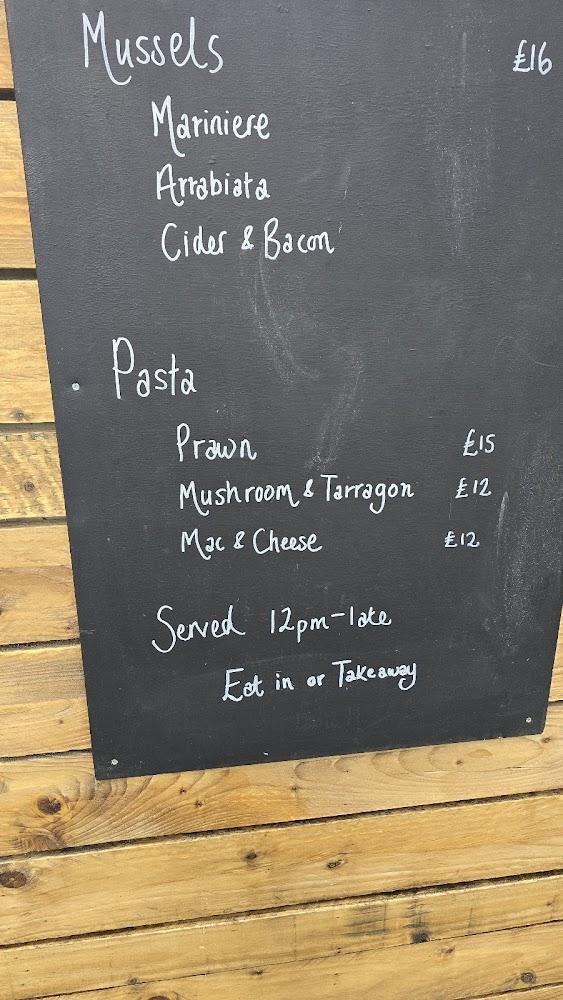 Mussels £16
Mariniere
Arrabiata
Cider & Bacon
Pasta
Prawn £15
Mushroom & Tarragon £12
Mac & Cheese £12
Served 12pm-late
Eat in or Takeaway